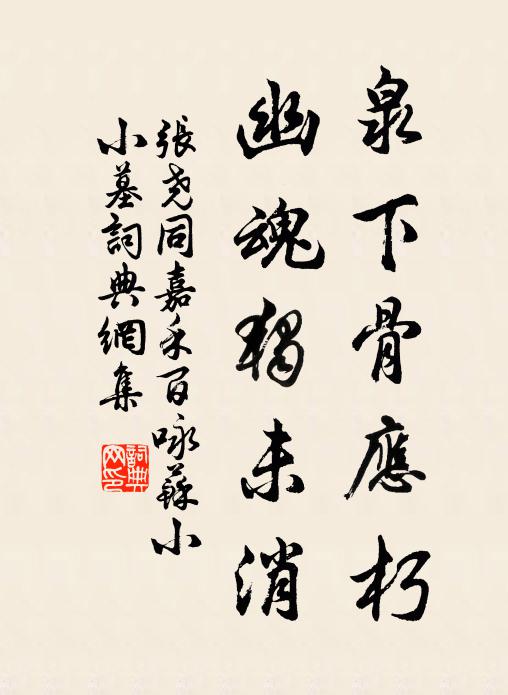 泉下骨應朽
幽魂獨未消
張堯同嘉禾百咏蘇小
小墓詞典網集
詞典
网印